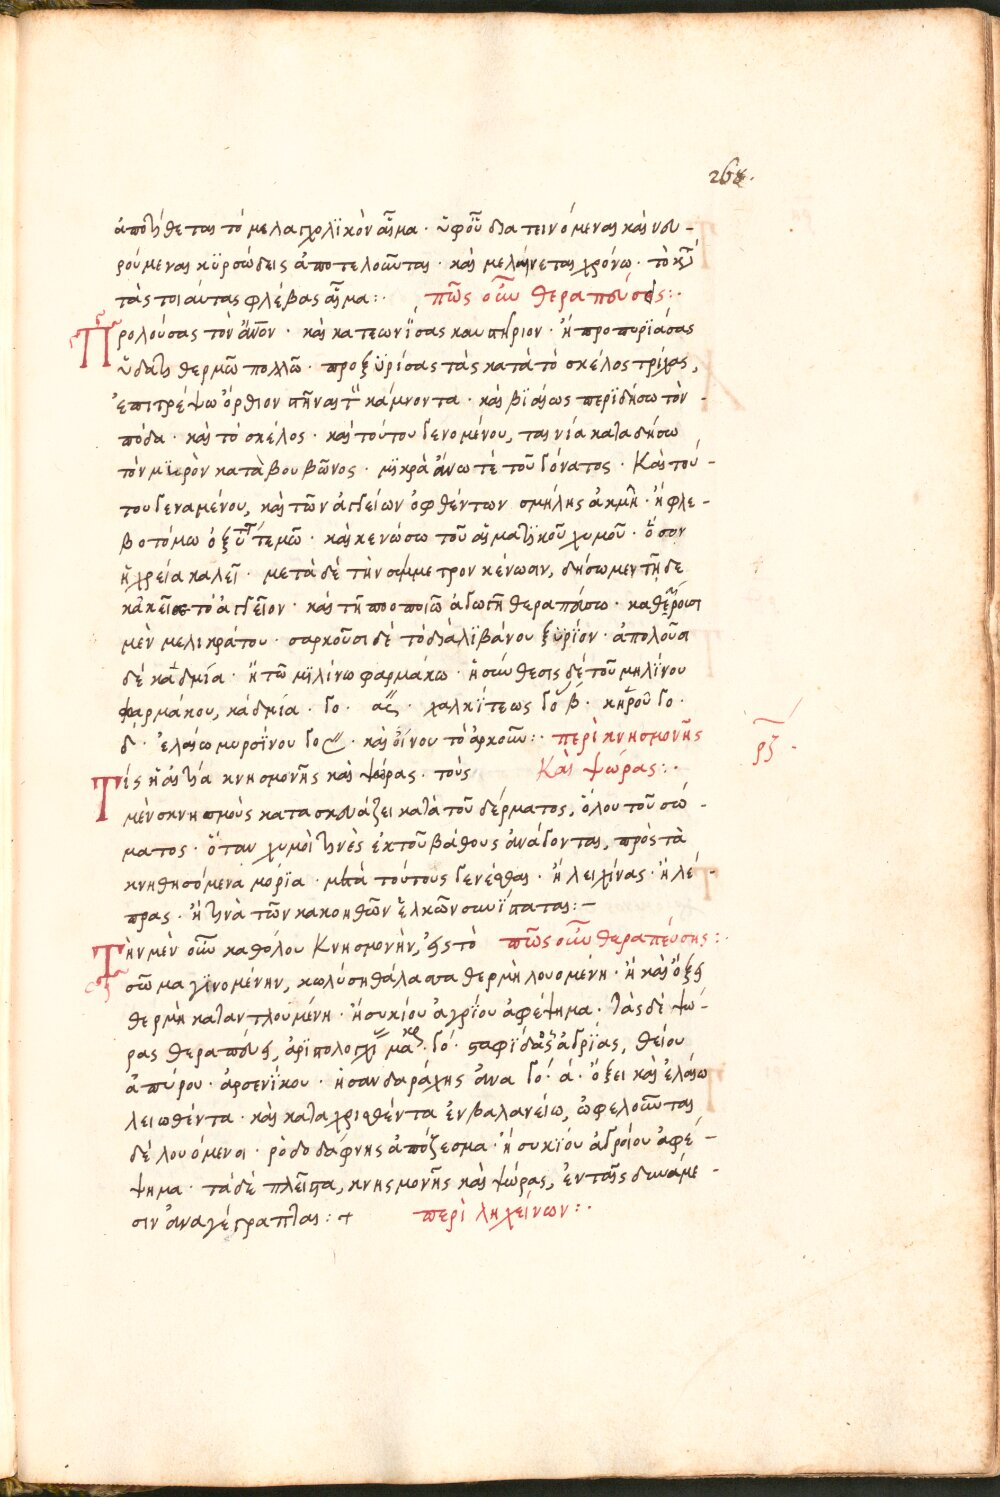 268.
ἀποτίθεται τὸ μελαγχολϊκὸν αἷμα · ὑφ' οὗ διατεινόμεναι καὶ νευ-
ρούμεναι κϋρσώδεις ἀποτελοῦνται · καὶ μελαίνεται χρόνω · τὸ κατὰ
τὰς τοιαύτας φλέβας αἷμα :· πῶς οὖν θεραπεύσεις :·
Προλούσας τὸν ἄνον · καὶ κατεωνίσας καυτήριον · ἢ προπυρϊάσας
ὕδατι θερμῶ πολλῶ · προξϋρίσας τὰς κατὰ τὸ σκέλος τρίχας,
ἐπιτρέψω ὄρθιον στῆναι τὸν κάμνοντα · καὶ βϊαίως περϊδήσω τὸν
πόδα · καὶ τὸ σκέλος · καὶ τούτου γενομένου, ταινία καταδήσω
τὸν μϊερὸν κατὰ βουβῶνος · μϊκρὰ ἄνω τὲ τοῦ γόνατος · Καὶ τού-
του γεναμένου, καὶ τῶν ἀγγείων ὀφθέντων σμήλης ἀκμῆ · ἢ φλε-
βοτόμω ὀξεῖ τεμῶ · καὶ κενώσω τοῦ αἱματικοῦ χυμοῦ · ὅσον
ἡ χρεία καλεῖ · μετὰ δὲ τὴν σύμμετρον κένωσιν, δήσωμεν τῆδε
κἀκεῖσε τὸ ἀγγεῖον · καὶ τῆ ποοποιῶ ἀγωγῆ θεραπεύσω · καθαίρουσι
μὲν μελικράτου · σαρκοῦσι δὲ τὸ διὰ λϊβάνου ξϋρίον · ἀπολοῦσι
δὲ καδμία · ἢ τῶ μϊλίνω φαρμάκω · ἡ σύνθεσις δέ τοῦ μηλίνου
φαρμάκου, κάδμία · γο · · χαλκίτεως γο β · κηροῦ γο ·
δ · ἐλαίω μυρσίνου γο · καὶ οἴνου τὸ ἀρκοῦν :· περὶ κνησμονῆς
Τίς ἡ αἰτία κνησμονῆς καὶ ψώρας · τοὺς Καὶ ψώρας :·
ρζ ·
μὲν σκνησμοὺς κατασκευάζει κατὰ τοῦ δέρματος, ὅλου τοῦ σώ-
ματος · ὅταν χυμοὶ τινὲς ἐκ τοῦ βάθους ἀνάγονται, πρὸς τὰ
κνηθησόμενα μόρϊα · μετὰ τούτους γενέσθαι · ἢ λειχίνας · ἢ λέ-
πρας · ἢ τινὰ τῶν κακοηθῶν ἑλκῶν συνϊσταται :–
Τὴν μὲν οὖν καθόλου Κνησμονὴν, εἰς τὸ πῶς οὖν θεραπεύσης :·
σῶμα γϊνομένην, κωλύσῃ θάλασσα θερμῆ λουομένη · ἢ καὶ ὄξει
θερμῆ καταντλουμένη · ἢ συκίου ἀγρίου ἀφέψημα · τὰς δὲ ψώ-
ρας θεραπεύει, · γό · σταφίδας ἀγρϊας, θείου
ἀπύρου · ἀρσενίκου · ἢ σανδαράχης ἄνα γό · ά · ὄξει καὶ ἐλαίω
λειωθέντα · καὶ καταχρισθέντα ἐν βαλανείω, ὠφελοῦνται
δὲ λουόμενοι · ρὁδοδάφνης ἀπόζεσμα · ἢ συκϊου ἀγρίου ἀφέ-
ψημα · τὰ δὲ πλεῖστα, κνησμονῆς καὶ ψώρας, ἐν ταῖς δυνάμε-
σιν ἀναγέγραπται : + περὶ ληχείνων :·